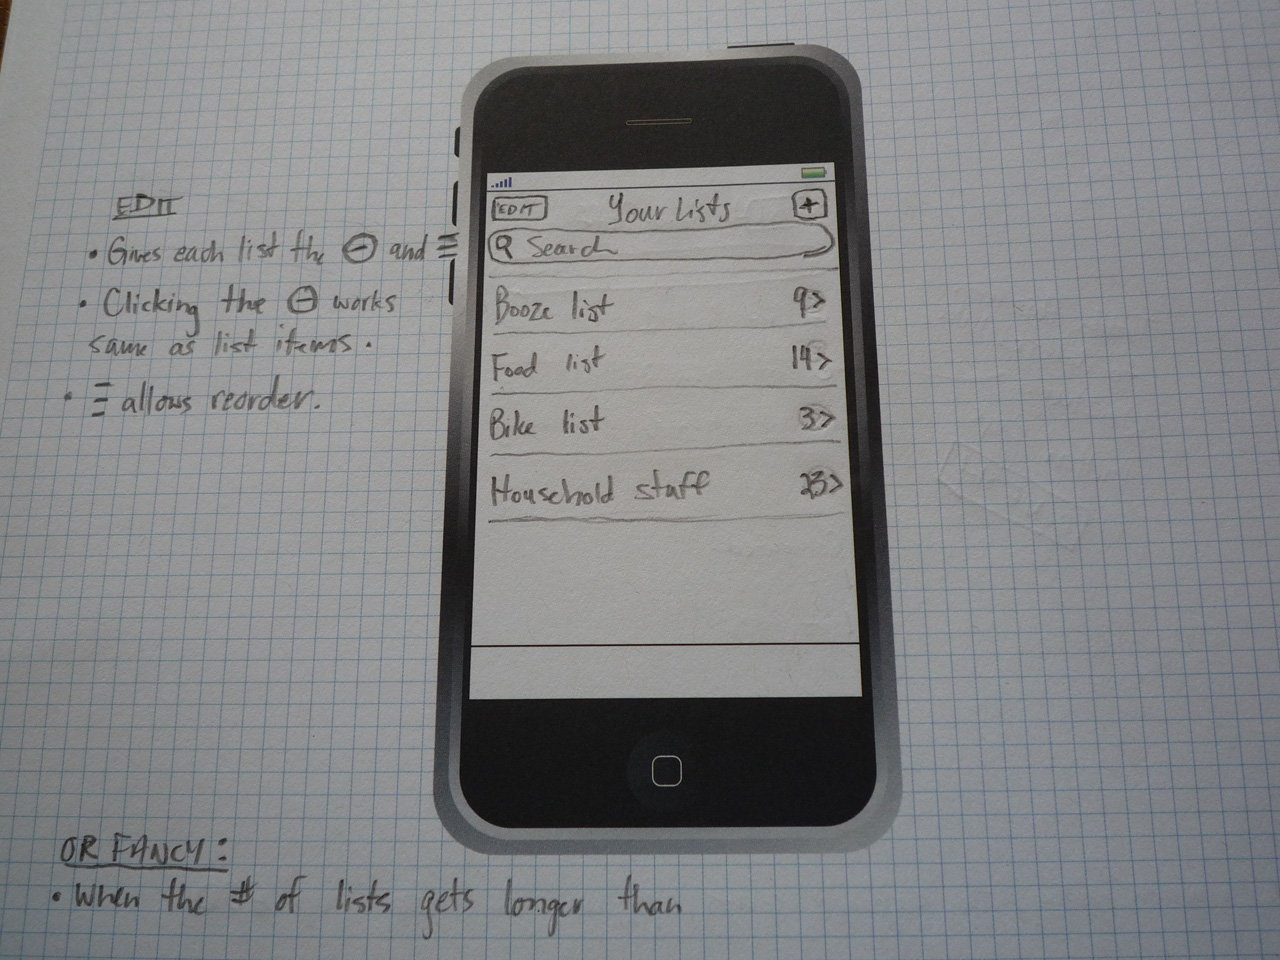 EDIT
• Gives each list the ⊖ and ≡
• Clicking the ⊖ works
same as list items.
• ≡ allows reorder.
EDIT Your Lists +
Search
Booze list 9>
Food list 14>
Bike list 3>
Household stuff 23>
OR FANCY:
• When the # of lists gets longer than